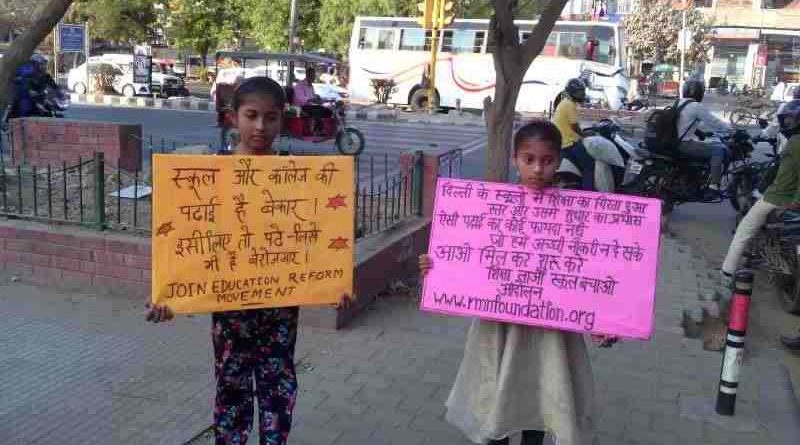 स्कूल और कॉलेज की
पढ़ाई है बेकार ।
इसीलिए तो पढे-लिखे
भी हैं बेरोज़गार ।
JOIN EDUCATION REFORM
MOVEMENT
दिल्ली के स्कूलों में शिक्षा का गिरता हुआ
स्तर और उसमे सुधार का प्रयास
ऐसी पढ़ाई का कोई फायदा नहीं
जो हमे अच्छी नौकरी न दे सके
आओ मिल कर शुरू करे
शिक्षा लाओ स्कूल बचाओ
आंदोलन
www.rmnfoundation.org